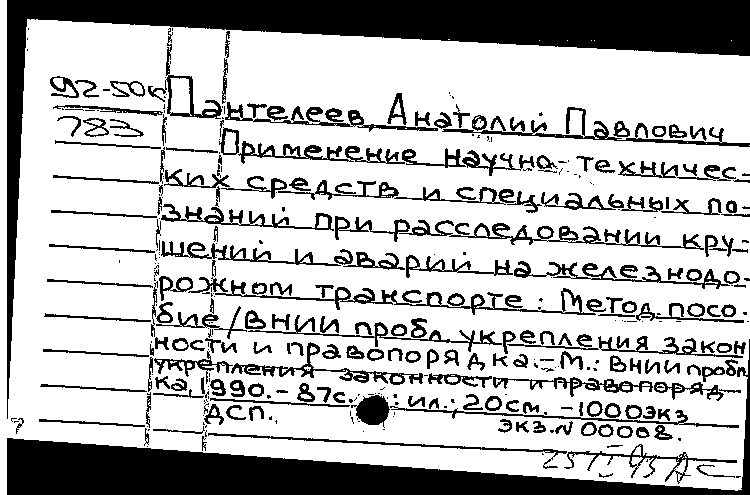 92-50к Пантелеев, Анатолий Павлович
783
Применение научно-техничес-
ких средств и специальных по-
знаний при расследовании кру-
шений и аварий на железнодо-
рожном транспорте: Метод. посо-
бие / ВНИИ пробл. укрепления закон
ности и правопорядка. - М.: ВНИИ пробл.
укрепления законности и правопоряд
ка, 1990. - 87с. : ил.; 20см. - 1000экз
ДСП. экз. N 00008.